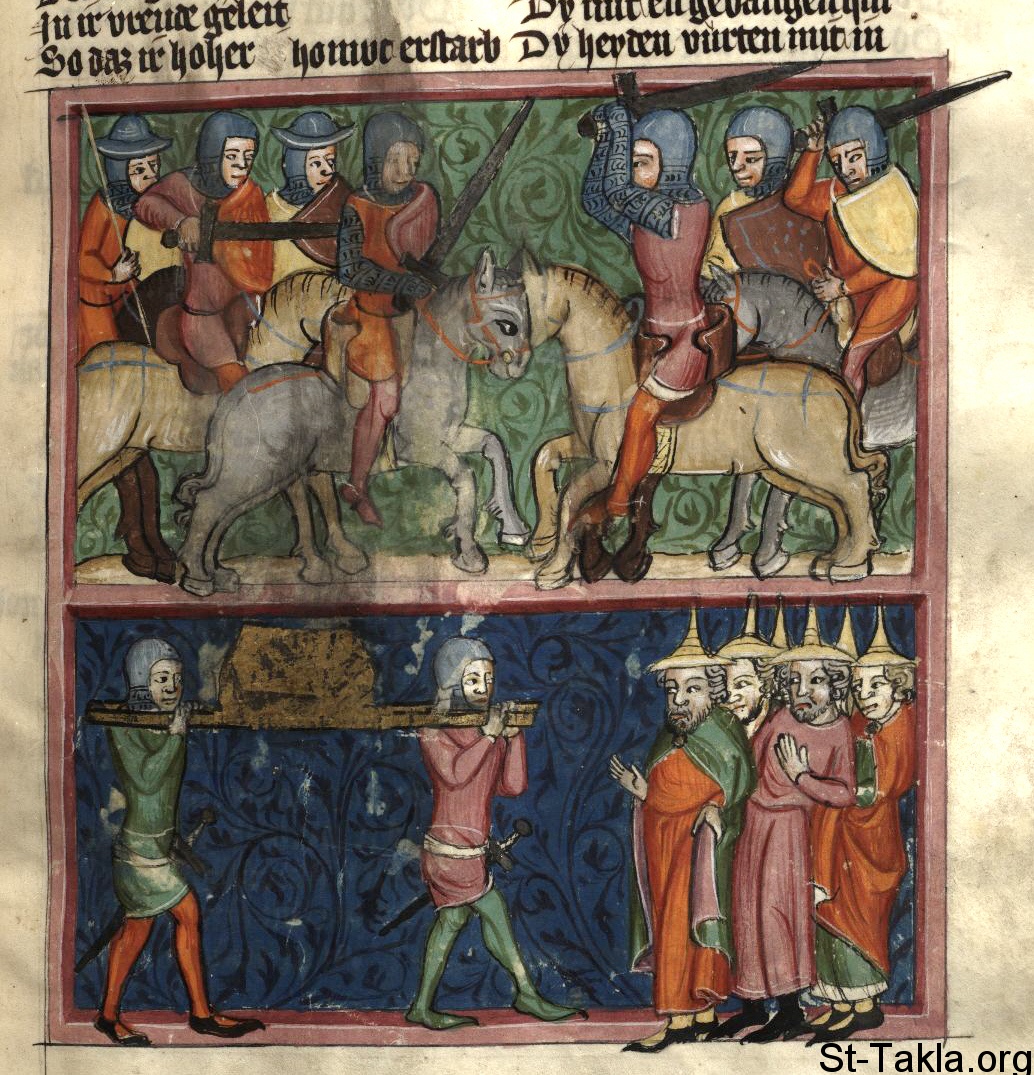 In ir vreude geleit
So daz ir hoher homut erstarb
Dy mit en gevangen hin
Dy heyden vurten mit in
St-Takla.org